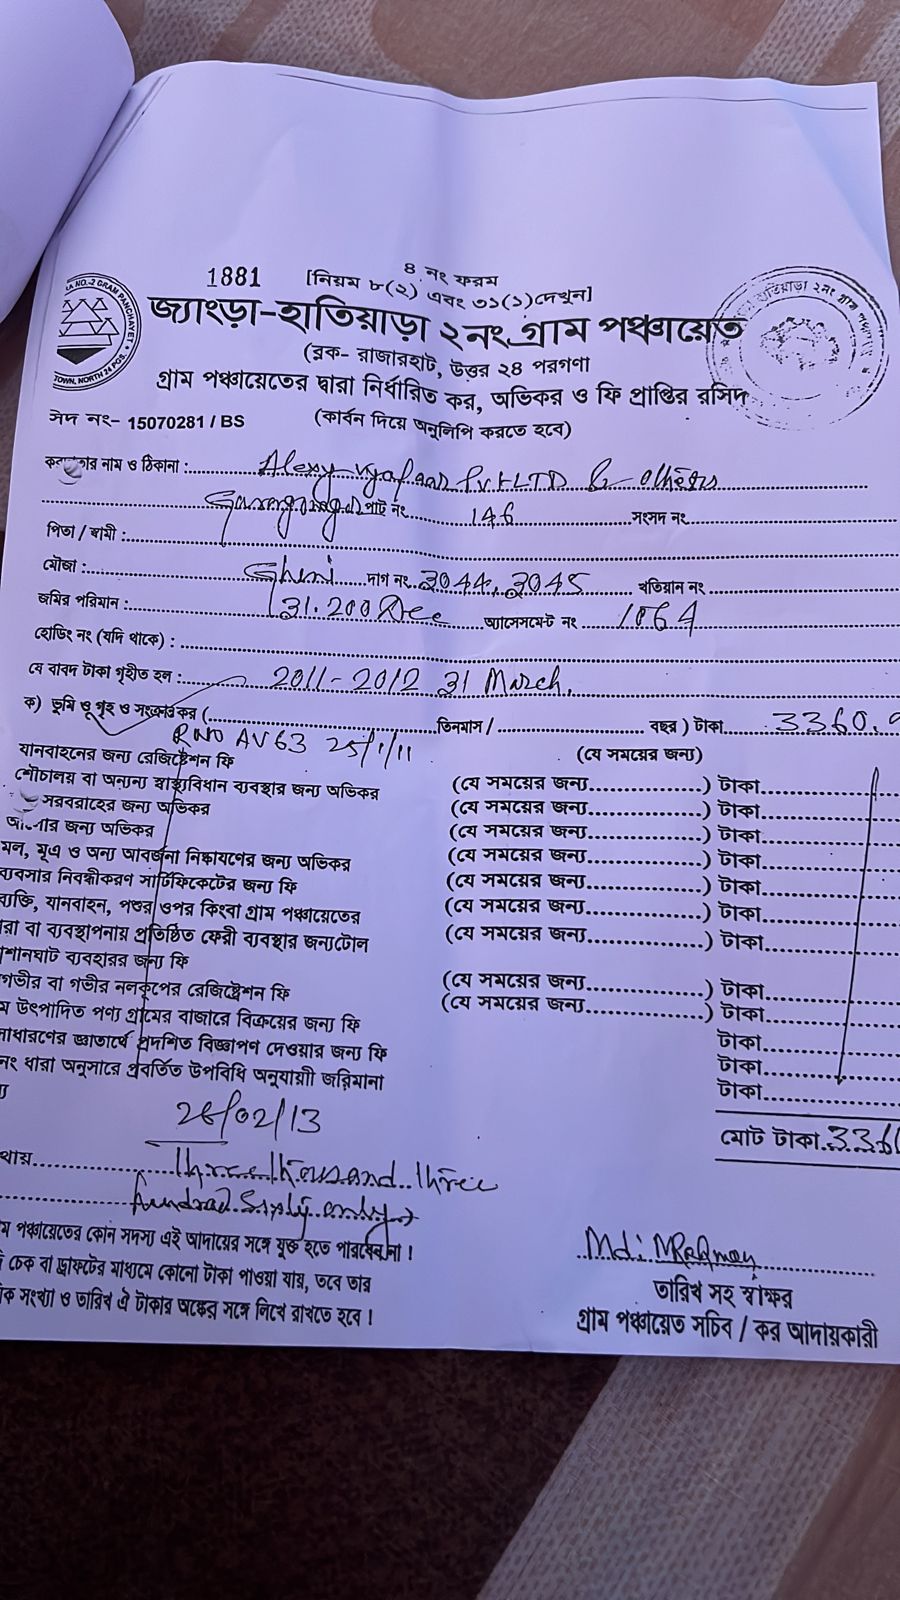 1881
৪ নং ফরম
[নিয়ম ৮(২) এবং ৩১(১)দেখুন]
জ্যাংড়া-হাতিয়াড়া ২নং গ্রাম পঞ্চায়েত
(ব্লক- রাজারহাট, উত্তর ২৪ পরগণা
গ্রাম পঞ্চায়েতের দ্বারা নির্ধারিত কর, অভিকর ও ফি প্রাপ্তির রসিদ
নং- 15070281 / BS (কার্বন দিয়ে অনুলিপি করতে হবে)
নাম ও ঠিকানা : Pvt LTD & others
পাট নং 146 সংসদ নং
পিতা / স্বামী :
মৌজা : Ghuni দাগ নং 3044, 3045 খতিয়ান নং
জমির পরিমান : 131.200 Dec অ্যাসেসমেন্ট নং 1064
হোডিং নং (যদি থাকে) :
যে বাবদ টাকা গৃহীত হল : 2011-2012 31 March.
ক) ভূমি ও গৃহ ও কর ( তিনমাস / বছর ) টাকা 3360.
R NO AV 63 25/1/11 (যে সময়ের জন্য)
যানবাহনের জন্য রেজিষ্ট্রেশন ফি
শৌচালয় বা অন্যন্য স্বাস্থ্যবিধান ব্যবস্থার জন্য অভিকর (যে সময়ের জন্য ) টাকা
সরবরাহের জন্য অভিকর (যে সময়ের জন্য ) টাকা
জন্য অভিকর (যে সময়ের জন্য ) টাকা
মল, মূএ ও অন্য আবর্জনা নিষ্কাযণের জন্য অভিকর (যে সময়ের জন্য ) টাকা
ব্যবসার নিবন্ধীকরণ সার্টিফিকেটের জন্য ফি (যে সময়ের জন্য ) টাকা
ব্যক্তি, যানবাহন, পশুর ওপর কিংবা গ্রাম পঞ্চায়েতের (যে সময়ের জন্য ) টাকা
রা বা ব্যবস্থাপনায় প্রতিষ্ঠিত ফেরী ব্যবস্থার জন্যটোল (যে সময়ের জন্য ) টাকা
শানঘাট ব্যবহারর জন্য ফি
গভীর বা গভীর নলকূপের রেজিষ্ট্রেশন ফি (যে সময়ের জন্য ) টাকা
উৎপাদিত পণ্য গ্রামের বাজারে বিক্রয়ের জন্য ফি (যে সময়ের জন্য ) টাকা
সাধারণের জ্ঞাতার্থে প্রদশিত বিজ্ঞাপণ দেওয়ার জন্য ফি টাকা
নং ধারা অনুসারে প্রবর্তিত উপবিধি অনুযায়ী জরিমানা টাকা
টাকা
26/02/13
মোট টাকা 336
থায় Three thousand three
hundred Sixty only
পঞ্চায়েতের কোন সদস্য এই আদায়ের সঙ্গে যুক্ত হতে পারবেন না !
চেক বা ড্রাফটের মাধ্যমে কোনো টাকা পাওয়া যায়, তবে তার
সংখ্যা ও তারিখ ঐ টাকার অঙ্কের সঙ্গে লিখে রাখতে হবে !
তারিখ সহ স্বাক্ষর
গ্রাম পঞ্চায়েত সচিব / কর আদায়কারী